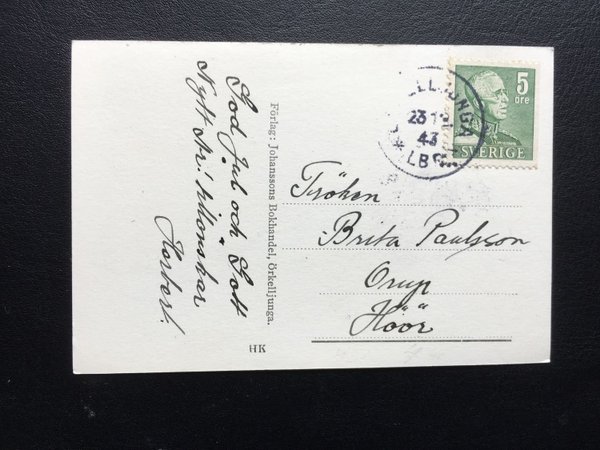 God Jul och Gott
Nytt År! tillönskar
Herbert.
Förlag: Johanssons Bokhandel, Örkelljunga.
HK
5
öre
SVERIGE
LLJUNGA
23 12
43
LBP
Fröken
Brita Paulsson
Orup
Höör